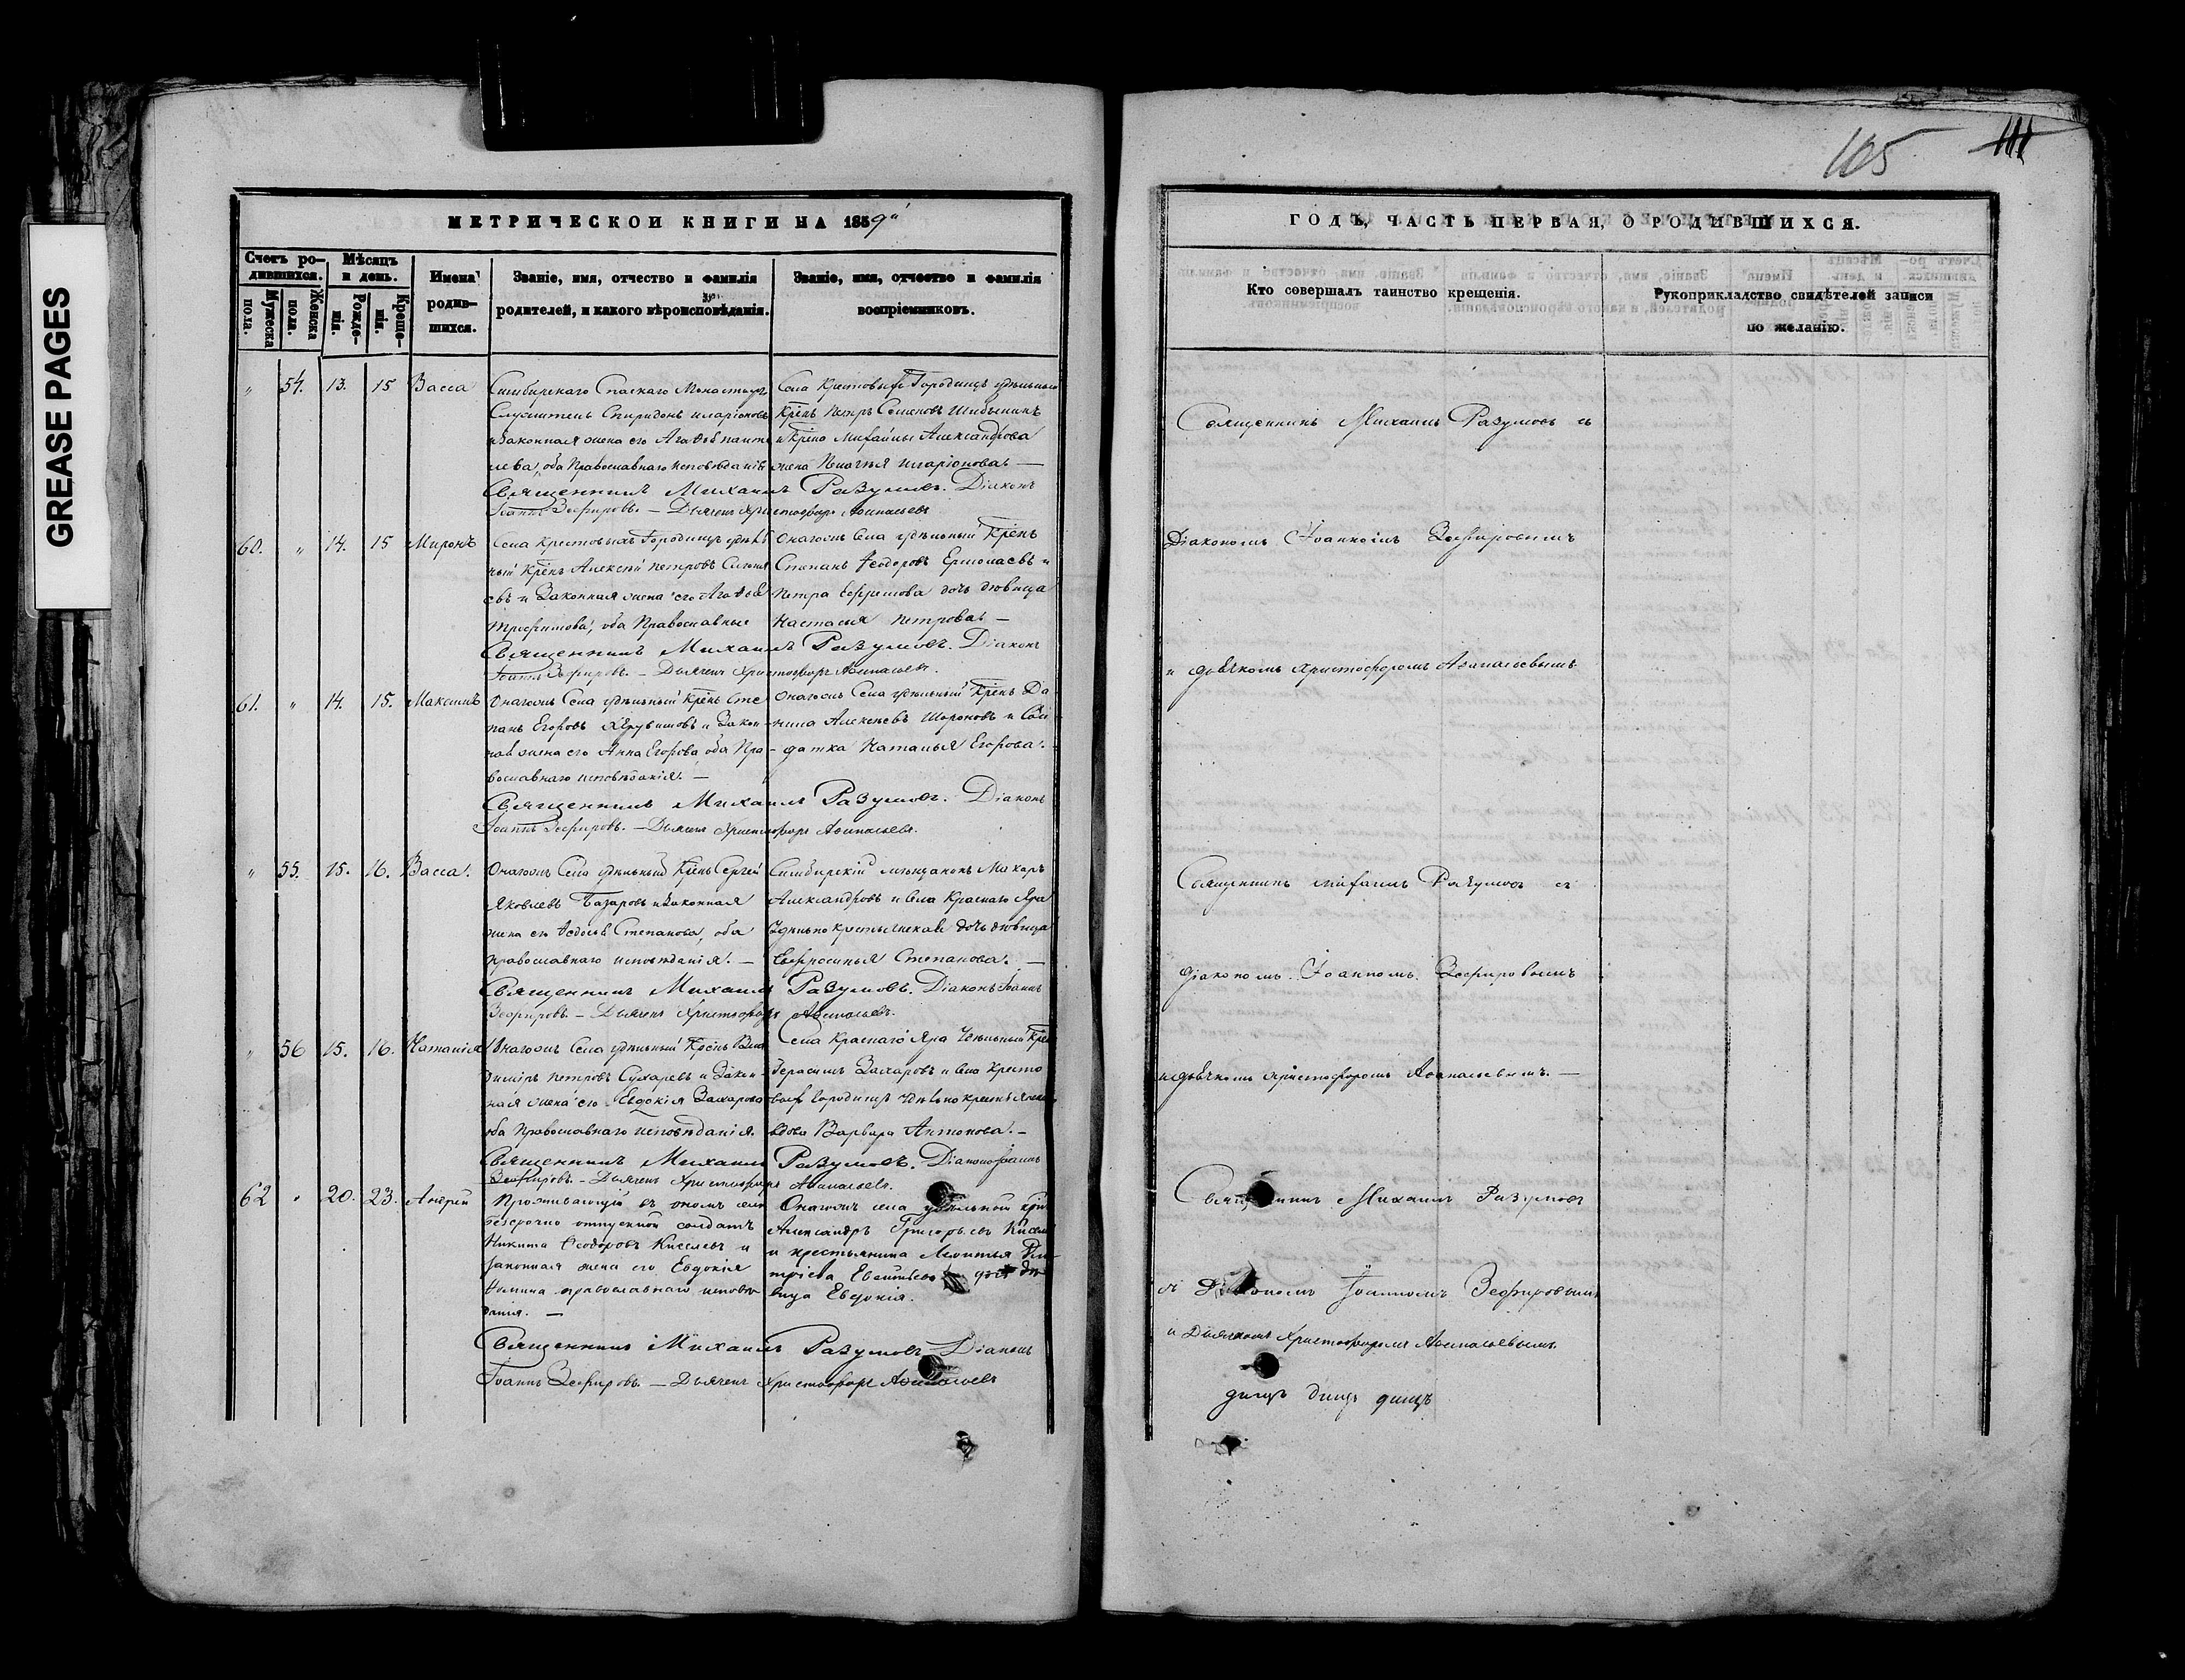 GREASE PAGES
105
111
МЕТРИЧЕСКОЙ КНИГИ НА 1859й
Счетъ ро-
дившихся.
Мужеска
пола.
Женска
пола.
Мѣсяцъ
и день.
Рожде-
нія.
Креще-
нія.
Имена
родив-
шихся.
Званіе, имя, отчество и фамилія
родителей, и какого вѣроисповѣданія.
Званіе, имя, отчество и фамилія
воспріемниковъ.
" 54. 13. 15 Васса
Симбирскаго Спаскаго Монастыря
Служитель Спиридонъ Иларіоновъ
и Законная жена его Агаѳья
оба Православнаго исповѣданія
Села Крестовыхъ Городищъ удѣльный
Крѣнъ Петръ Семеновъ
и Крѣно Михайлы Александрова
жена Иларіонова. —
Священникъ Михаилъ Разумовъ. Діаконъ
Іоаннъ Зефировъ. — Дьячекъ Христофоръ Аѳанасьевъ
60. " 14. 15 Миронъ
Села Крестовыхъ Городищъ удѣль
ный Крѣнъ Алексѣй Петровъ
евъ и Законная жена его Агаѳья
Трофимова, оба Православные
Онагожъ Села удѣльный Крѣнъ
Степанъ Ѳеодоровъ Ермолаевъ и
Петра Ефремова дочь дѣвица
Настасья Петрова. —
Священникъ Михаилъ Разумовъ. Діаконъ
Іоаннъ Зефировъ. — Дьячекъ Христофоръ Аѳанасьевъ.
61. " 14. 15. Максимъ
Онагожъ Села удѣльный Крѣнъ Сте
панъ Егоровъ Херувимовъ и Закон-
ная жена его Анна Егорова, оба Пра-
вославнаго исповѣданія. —
Онагожъ Села удѣльный Крѣнъ Да-
нила Алексеевъ Шороновъ и Сол-
датка Наталья Егорова. —
Священникъ Михаилъ Разумовъ. Діаконъ
Іоаннъ Зефировъ. — Дьячекъ Христофоръ Аѳанасьевъ.
" 55. 15. 16. Васса.
Онагожъ Села удѣльный Крѣнъ Сергей
Яковлевъ Базаровъ и Законная
жена его Ѳедосья Степанова, оба
Православнаго исповѣданія. —
Симбирскій мѣщанинъ Макаръ
Александровъ и Села Краснаго Яра
Удѣльно крестьянская дочь дѣвица
Евфросинья Степанова. —
Священникъ Михаилъ Разумовъ. Діаконъ Іоаннъ
Зефировъ. — Дьячекъ Христофоръ Аѳанасьевъ.
" 56 15. 16. Наталія
Онагожъ Села удѣльный Крѣнъ Вла
диміръ Петровъ Сухаревъ и Закон-
ная жена его Евдокія Захарова
оба Православнаго исповѣданія.
Села Краснаго Яра Удѣльный Крѣн
Герасимъ Захаровъ и Села Кресто
выхъ Городищъ
вдова Варвара Антонова. —
Священникъ Михаилъ Разумовъ. Діаконъ Іоаннъ
Зефировъ. — Дьячекъ Христофоръ Аѳанасьевъ.
62 " 20. 23. Андрей
Проживающій въ ономъ селѣ
безсрочно отпускной солдатъ
Никита Ѳеодоровъ Киселевъ и
законная жена его Евдокія
православнаго исповѣ
данія. —
Онагожъ села удѣльный крѣн
Александръ Григорьевъ Кисел
и крестьянина
дочь дѣ
вица Евдокія.
Священникъ Михаилъ Разумовъ Діаконъ
Іоаннъ Зефировъ. — Дьячекъ Христофоръ Аѳанасьевъ
ГОДЪ, ЧАСТЬ ПЕРВАЯ, О РОДИВШИХСЯ.
Кто совершалъ таинство крещенія.
Рукоприкладство свидѣтелей записи
по желанію.
Священникъ Михаилъ Разумовъ съ
Діакономъ Іоанномъ Зефировымъ
и дьячкомъ Христофоромъ Аѳанасьевымъ
Священникъ Михаилъ Разумовъ съ
діакономъ Іоанномъ Зефировымъ
и дьячкомъ Христофоромъ Аѳанасьевымъ. —
Священникъ Михаилъ Разумовъ
съ Діакономъ Іоанномъ Зефировымъ
и Дьячкомъ Христофоромъ Аѳанасьевымъ